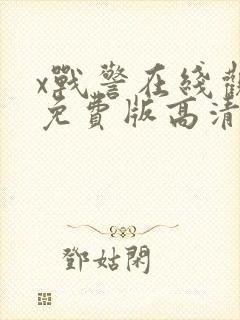 x戰警在綫觀
免費版高清
鄧姑閑